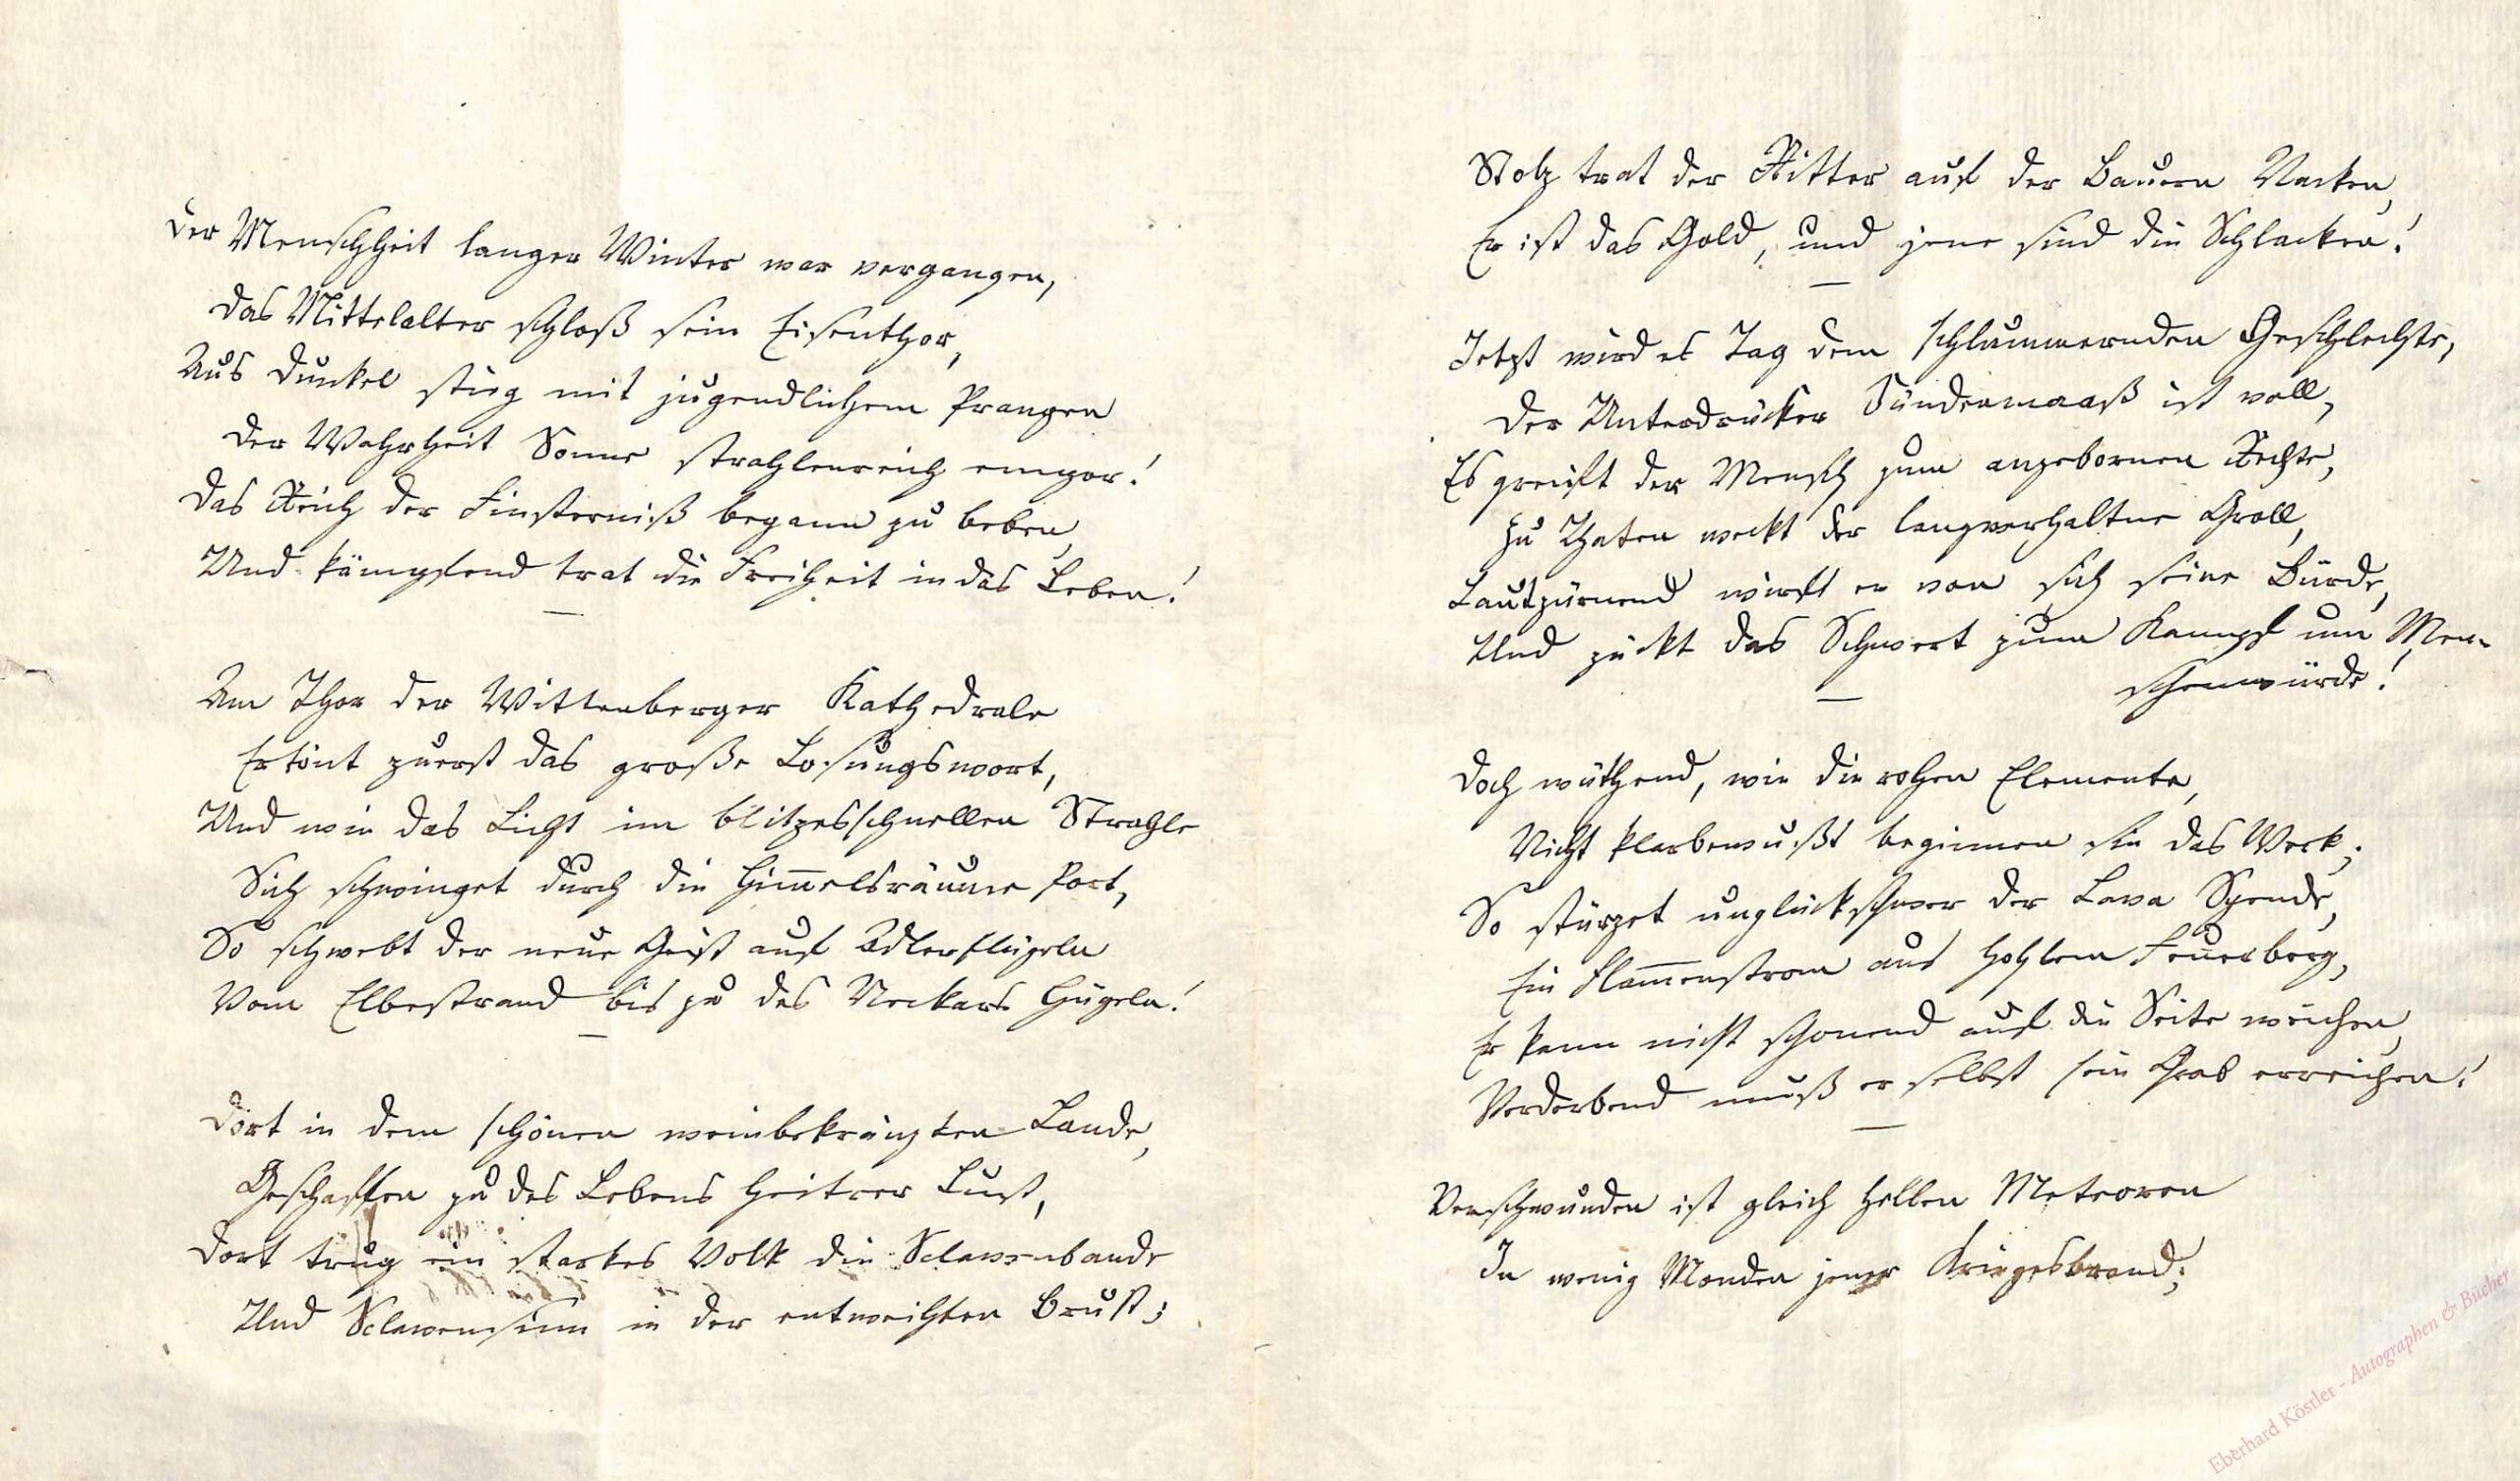 Der Menschheit langer Winter war vergangen,
Das Mittelalter schloß sein Eisenthor,
Aus Dunkel stieg mit jugendlichem Prangen
Der Wahrheit Sonne strahlenreich empor!
Das Reich der Finsterniß begann zu beben,
Und kämpfend trat die Freiheit in das Leben!
—
Am Thor der Wittenberger Kathedrale
Ertönt zuerst das große Losungswort,
Und wie das Licht im blitzesschnellen Strahle
Sich schwinget durch die Himmelsräume fort,
So schwebt der neue Geist auf Adlerflügeln
Vom Elbestrand bis zu des Neckars Hügeln!
—
Dort in dem schönen weinbekränzten Lande,
Geschaffen zu des Lebens heitrer Lust,
Dort trug ein starkes Volk die Sclavenbande
Und Sclavensinn in der entweihten Brust;
Stolz trat der Ritter auf der Bauern Nacken,
Er ist das Gold, und jene sind die Schlacken!
—
Jetzt wird es Tag dem schlummernden Geschlechte,
Der Unterdrücker Sündenmaaß ist voll,
Es greift der Mensch zum angebornen Rechte,
Zu Thaten weckt der langverhaltne Groll,
Lautzürnend wirft er von sich seine Bürde,
Und zückt das Schwert zum Kampf um Men-
schenwürde!
—
Doch wüthend, wie die rohen Elemente,
Nicht klarbewußt beginnen sie das Werk;
So stürzet unglückschwer der Lava Spende,
Ein Flammenstrom aus hohlem Feuerberg,
Er kann nicht schonend auf die Seite weichen,
Verderbend muß er selbst sein Grab erreichen!
—
Verschwunden ist gleich hellen Meteoren
In wenig Monden jener Kriegesbrand;
Eberhard Köstler - Autographen & Bücher